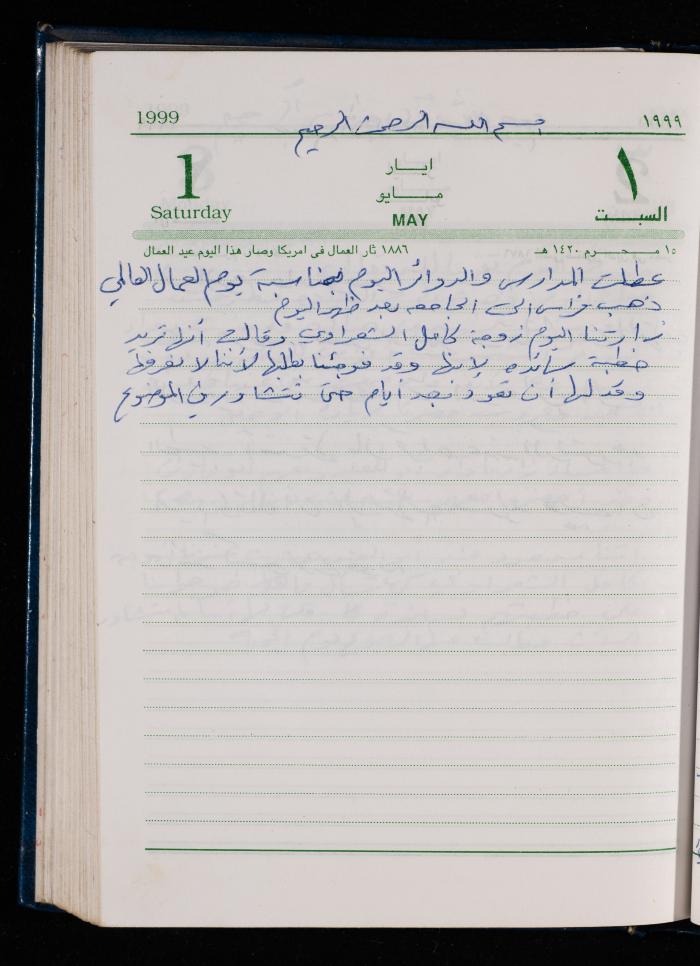 1999
بسم الله الرحمن الرحيم
١٩٩٩
1
Saturday
ايار
مايو
MAY
١
السبت
١٥ محرم ١٤٢٠ هـ
١٨٨٦ ثار العمال في امريكا وصار هذا اليوم عيد العمال
عطلت المدارس والدوائر اليوم بمناسبة يوم العمال العالمي
ذهب فراس الى الجامعه بعد ظهر اليوم
زارتنا اليوم زوجة كامل الشعراوي وقالت أنها تريد
خطبة سائده لإبنها وقد فوجئنا بطلبها لأننا لا نعرفها
وقد لها أن تعود بعد أيام حتى نتشاور في الموضوع